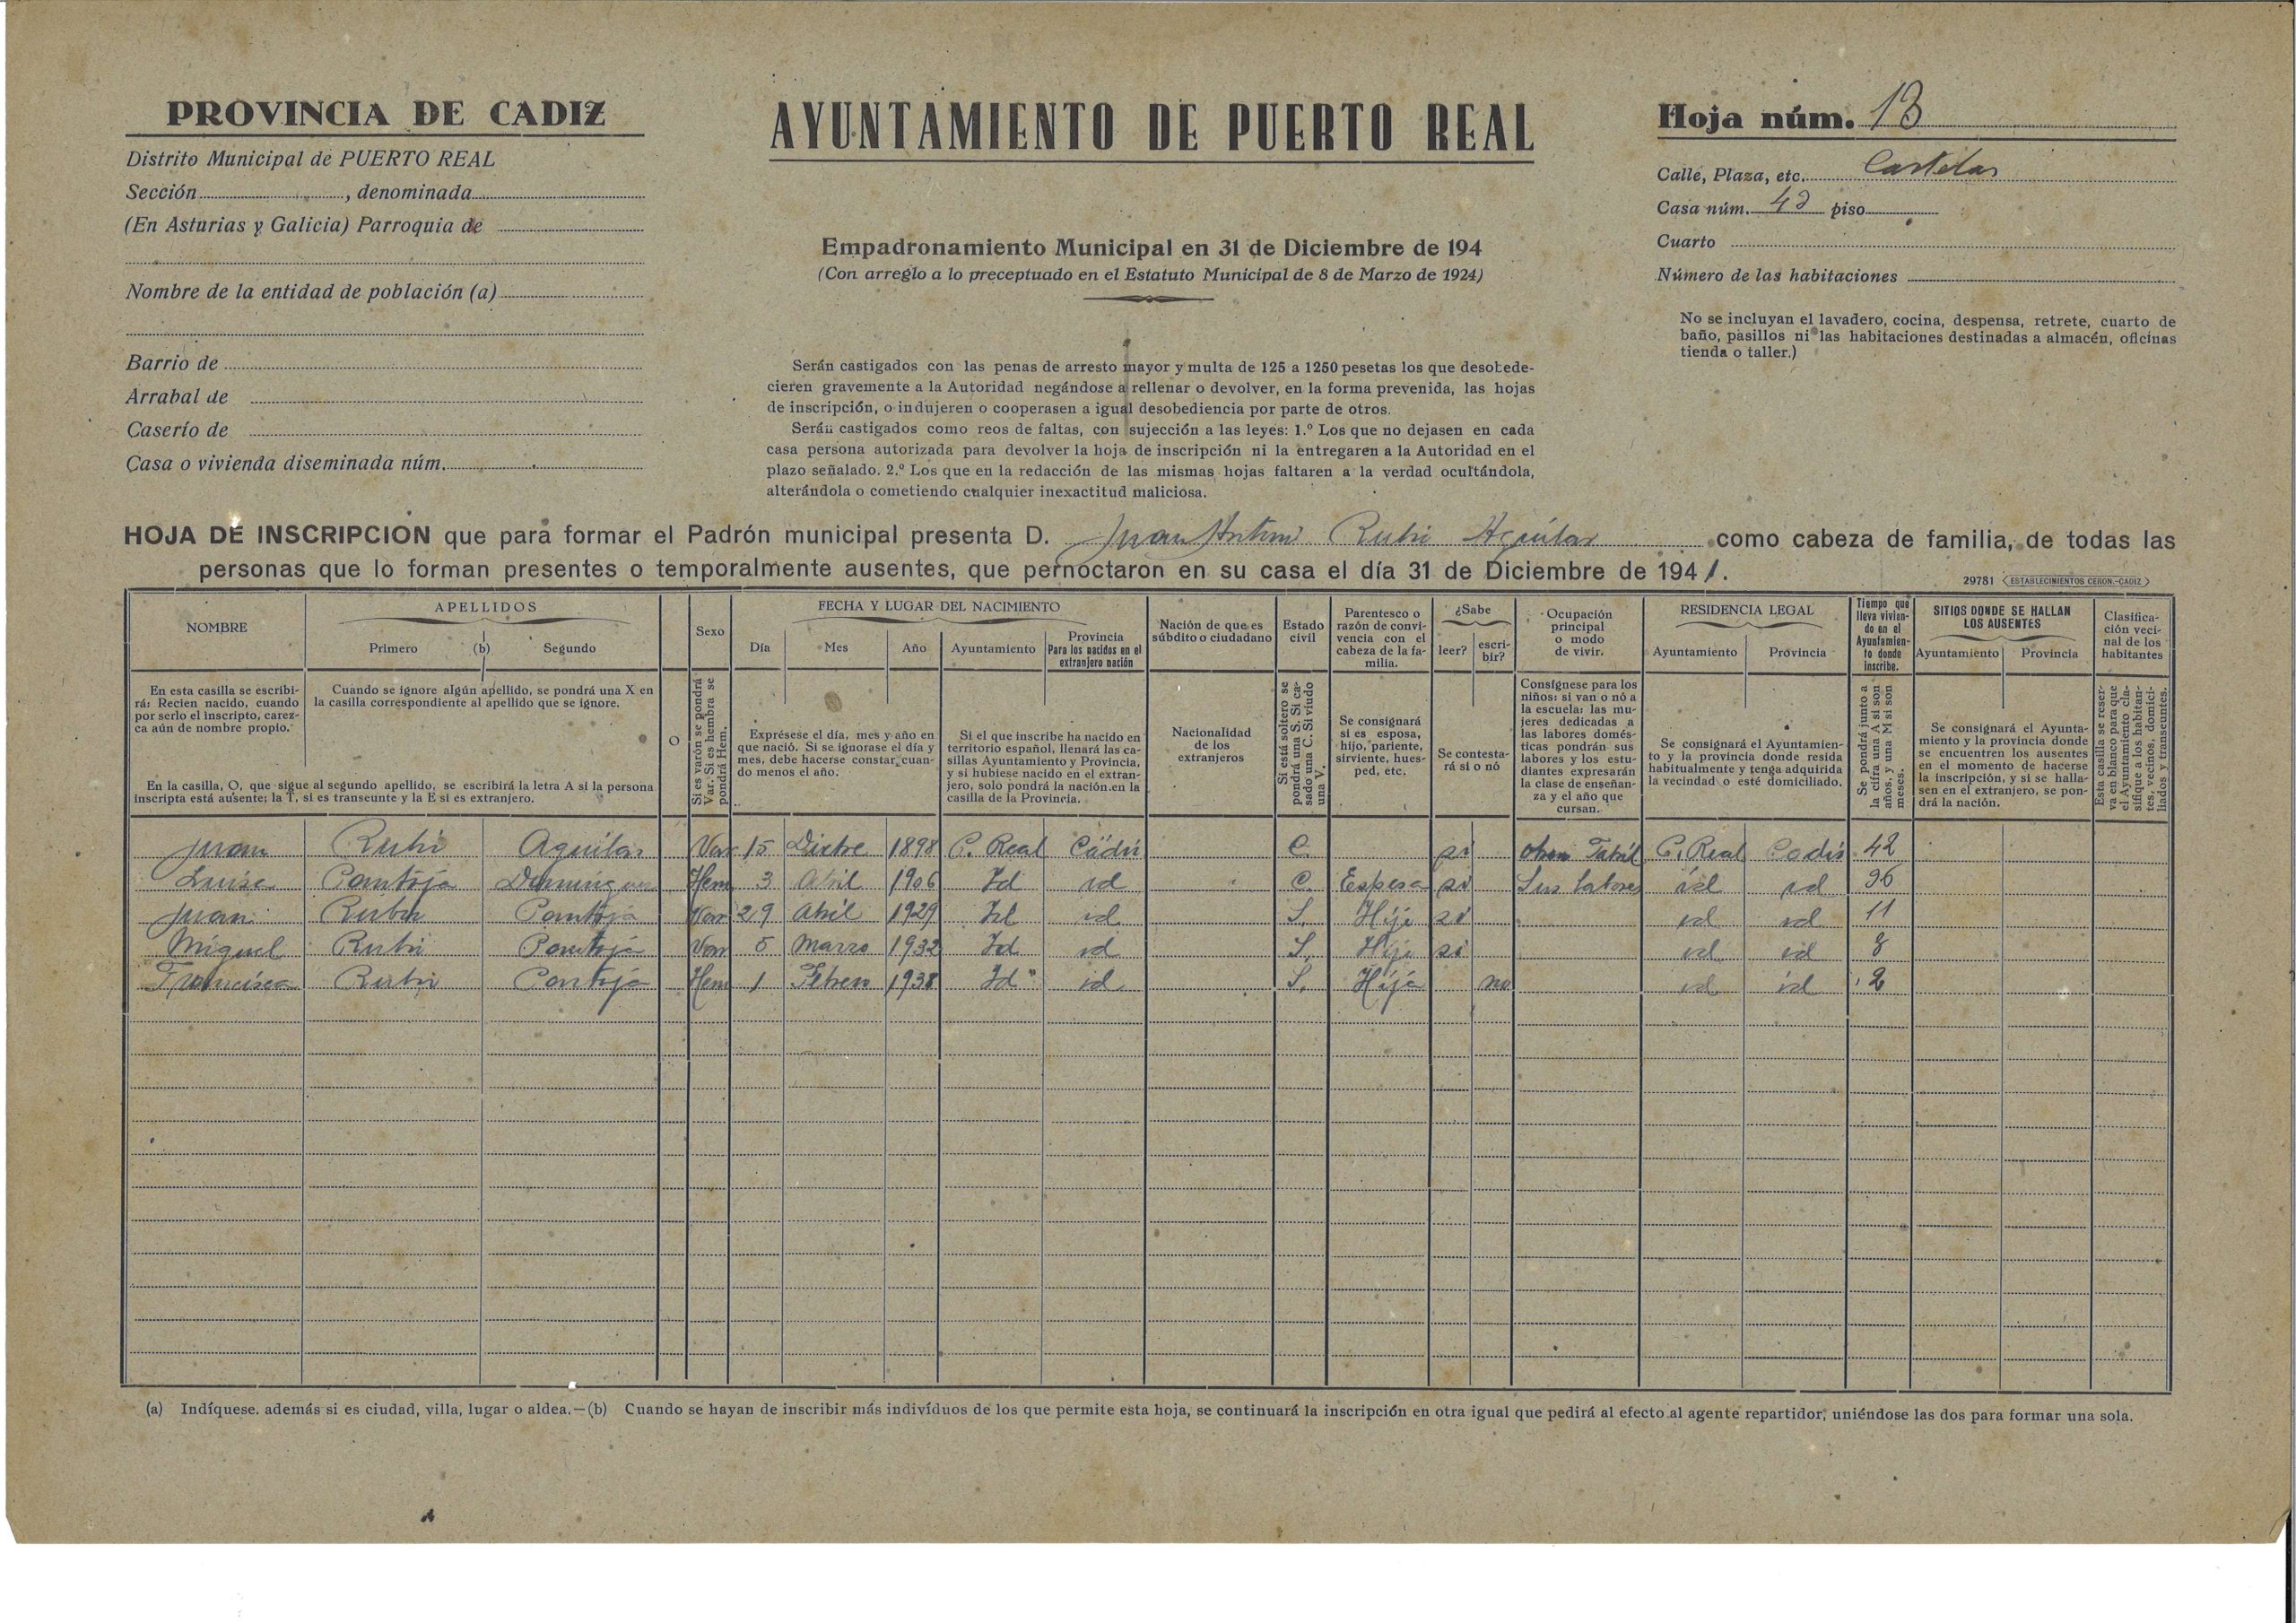 PROVINCIA DE CADIZ
Distrito Municipal de PUERTO REAL
Sección, denominada
(En Asturias y Galicia) Parroquia de
Nombre de la entidad de población (a)
Barrio de
Arrabal de
Caserío de
Casa o vivienda diseminada núm.
AYUNTAMIENTO DE PUERTO REAL
Empadronamiento Municipal en 31 de Diciembre de 194
(Con arreglo a lo preceptuado en el Estatuto Municipal de 8 de Marzo de 1924)
Serán castigados con las penas de arresto mayor y multa de 125 a 1250 pesetas los que desobede-
cieren gravemente a la Autoridad negándose a rellenar o devolver, en la forma prevenida, las hojas
de inscripción, o indujeren o cooperasen a igual desobediencia por parte de otros.
Serán castigados como reos de faltas, con sujección a las leyes: 1.º Los que no dejasen en cada
casa persona autorizada para devolver la hoja de inscripción ni la entregaren a la Autoridad en el
plazo señalado. 2.º Los que en la redacción de las mismas hojas faltaren a la verdad ocultándola,
alterándola o cometiendo cualquier inexactitud maliciosa.
Hoja núm. 13
Calle, Plaza, etc. Castelar
Casa núm. piso
Cuarto
Número de las habitaciones
No se incluyan el lavadero, cocina, despensa, retrete, cuarto de
baño, pasillos ni las habitaciones destinadas a almacén, oficinas
tienda o taller.)
HOJA DE INSCRIPCION que para formar el Padrón municipal presenta D. Juan Antonio Rubi Aguilar como cabeza de familia, de todas las
personas que lo forman presentes o temporalmente ausentes, que pernoctaron en su casa el día 31 de Diciembre de 1941.
29781 (ESTABLECIMIENTOS CERON.-CADIZ)
NOMBRE
APELLIDOS
Primero (b) Segundo
O
Sexo
FECHA Y LUGAR DEL NACIMIENTO
Día Mes Año Ayuntamiento
Provincia
Para los nacidos en el
extranjero nación
Nación de que es
súbdito o ciudadano
Estado
civil
Parentesco o
razón de convi-
vencia con el
cabeza de la fa-
milia.
¿Sabe
leer? escri-
bir?
Ocupación
principal
o modo
de vivir.
RESIDENCIA LEGAL
Ayuntamiento Provincia
Tiempo que
lleva vivien-
do en el
Ayuntamien-
to donde
inscribe.
SITIOS DONDE SE HALLAN
LOS AUSENTES
Ayuntamiento Provincia
Clasifica-
ción veci-
nal de los
habitantes
En esta casilla se escribi-
rá: Recien nacido, cuando
por serlo el inscripto, carez-
ca aún de nombre propio.
Cuando se ignore algún apellido, se pondrá una X en
la casilla correspondiente al apellido que se ignore.
En la casilla, O, que sigue al segundo apellido, se escribirá la letra A si la persona
inscripta está ausente; la T, si es transeunte y la E si es extranjero.
Si es varón se pondrá
Var. Si es hembra se
pondrá Hem.
Exprésese el día, mes y año en
que nació. Si se ignorase el día y
mes, debe hacerse constar cuan-
do menos el año.
Si el que inscribe ha nacido en
territorio español, llenará las ca-
sillas Ayuntamiento y Provincia,
y si hubiese nacido en el extran-
jero, solo pondrá la nación en la
casilla de la Provincia.
Nacionalidad
de los
extranjeros
Si está soltero se
pondrá una S. Si ca-
sado una C. Si viudo
una V.
Se consignará
si es esposa,
hijo, pariente,
sirviente, hues-
ped, etc.
Se contesta-
rá sí o nó
Consígnese para los
niños: si van o nó a
la escuela: las mu-
jeres dedicadas a
las labores domés-
ticas pondrán sus
labores y los estu-
diantes expresarán
la clase de enseñan-
za y el año que
cursan.
Se consignará el Ayuntamien-
to y la provincia donde resida
habitualmente y tenga adquirida
la vecindad o esté domiciliado.
Se pondrá junto a
la cifra una A si son
años, y una M si son
meses.
Se consignará el Ayunta-
miento y la provincia donde
se encuentren los ausentes
en el momento de hacerse
la inscripción, y si se halla-
sen en el extranjero, se pon-
drá la nación.
Esta casilla se reser-
va en blanco para que
el Ayuntamiento cla-
sifique a los habitan-
tes, vecinos, domici-
liados y transeuntes.
Juan Rubi Aguilar Var 15 Dicbre 1898 P. Real Cádiz C. si P. Real Cadiz 42
Luisa Pantoja Dominguez Hem 3 Abril 1906 Id id C. Esposa si Sus labores id id
Juan Rubi Pantoja Var 29 Abril 1929 Id id S. Hijo si id id 11
Miguel Rubi Pantoja Var 5 Marzo 1932 Id id S. Hijo si id id 8
Francisca Rubi Pantoja Hem 1 Febrero 1938 Id id S. Hija no id id 2
(a) Indíquese. además si es ciudad, villa, lugar o aldea.—(b) Cuando se hayan de inscribir más indivíduos de los que permite esta hoja, se continuará la inscripción en otra igual que pedirá al efecto al agente repartidor, uniéndose las dos para formar una sola.